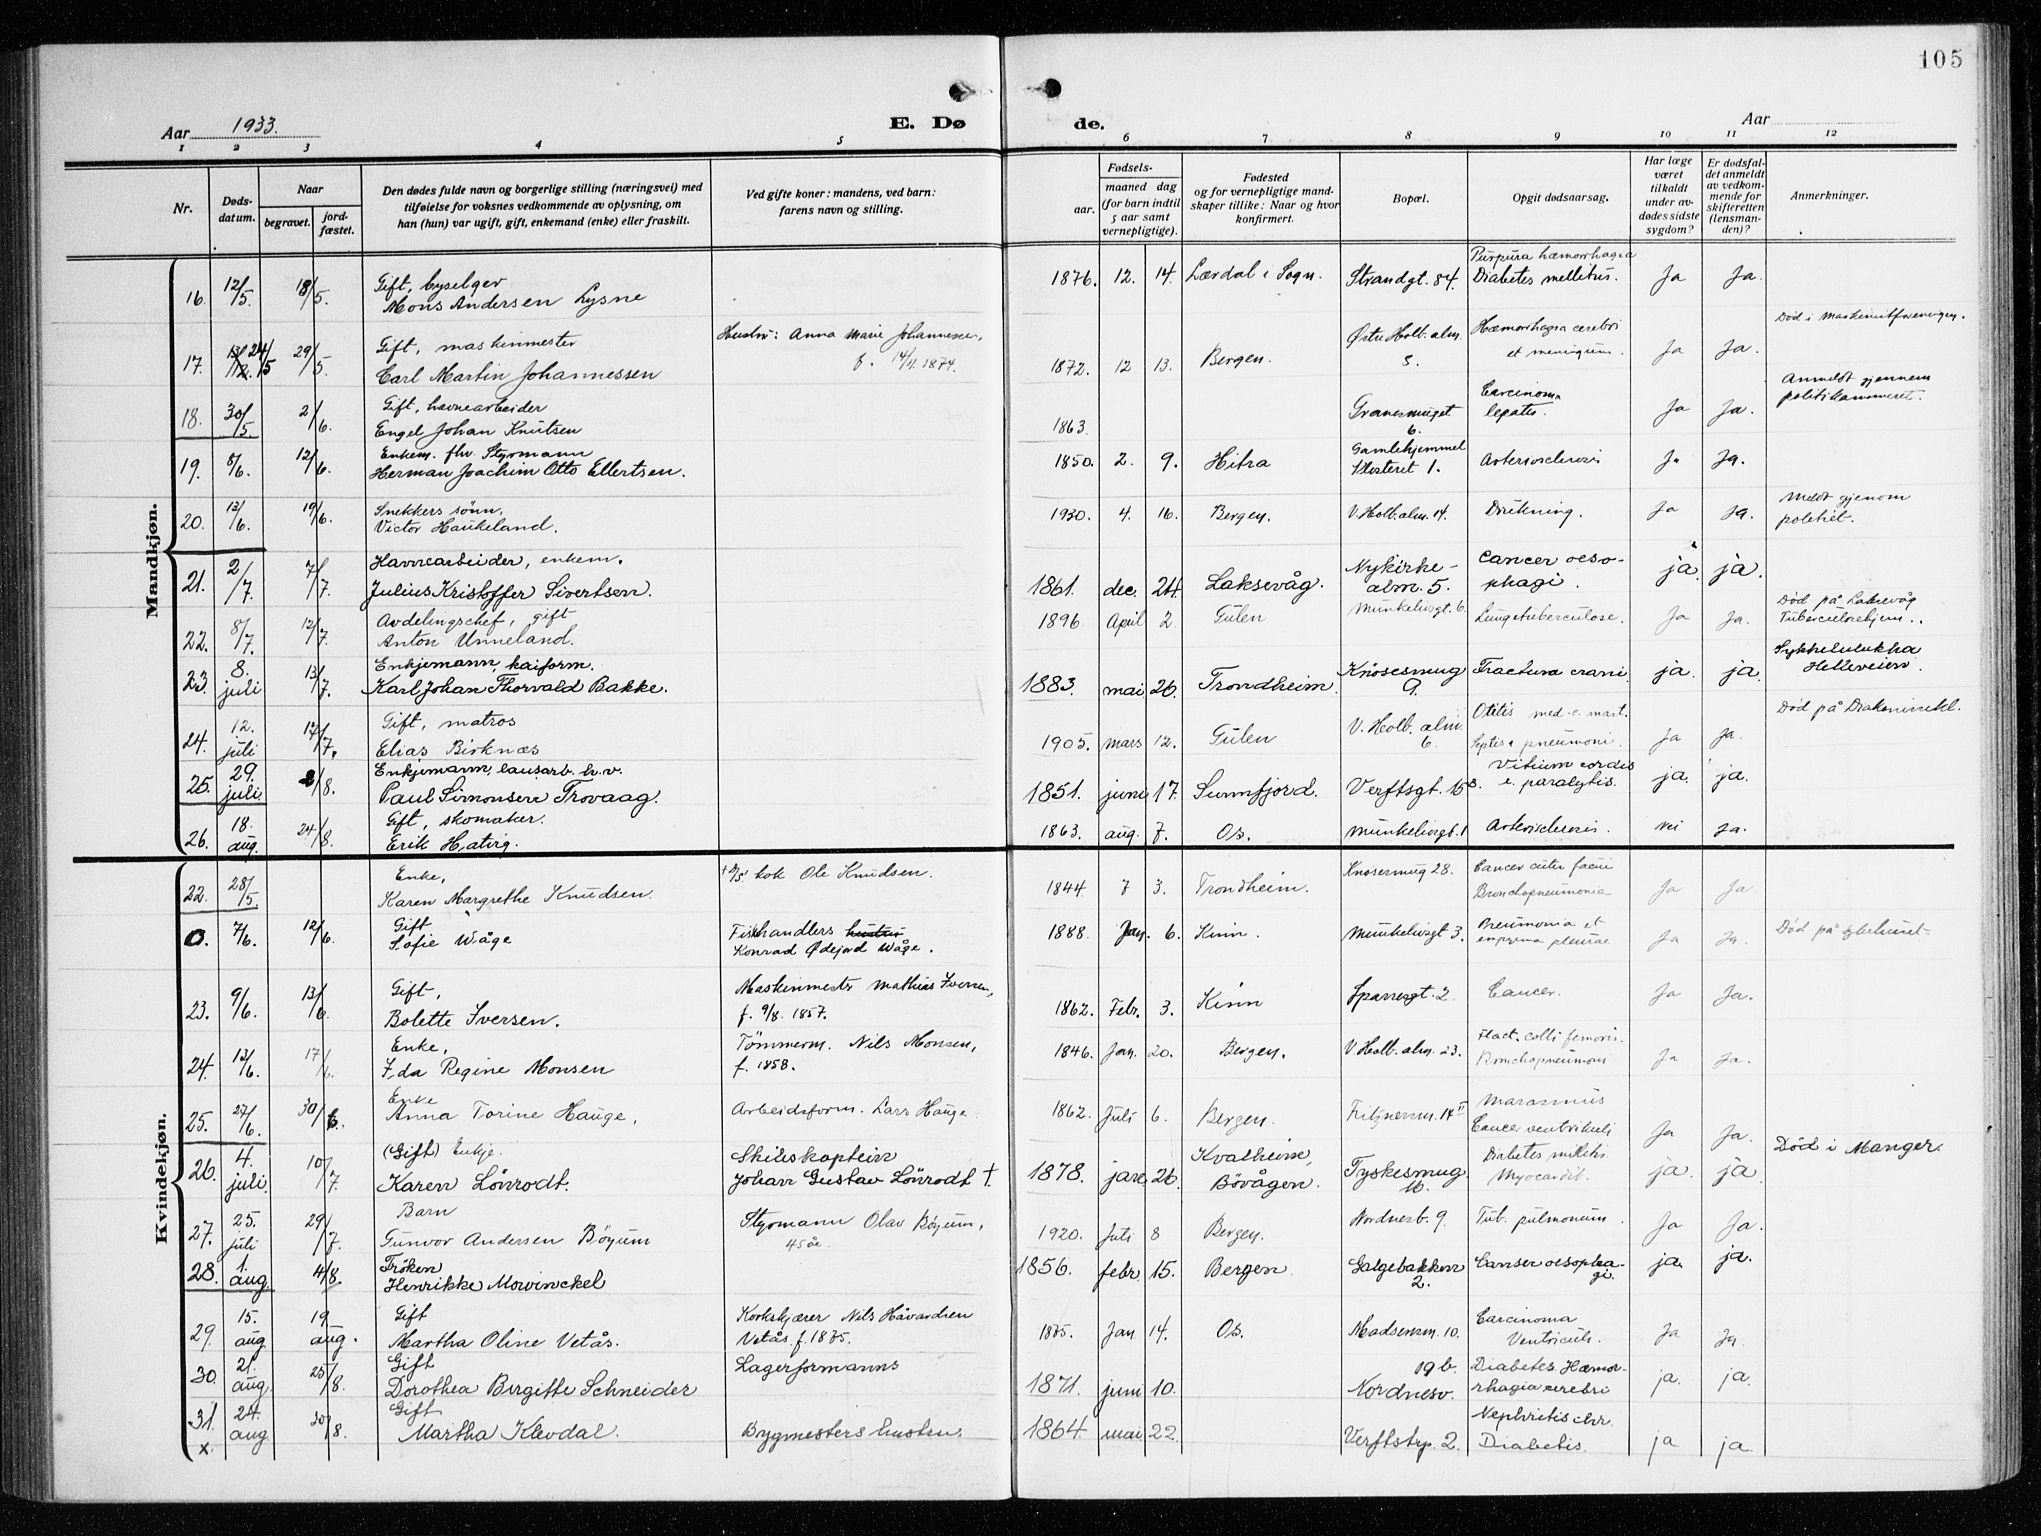 105
Aar 1933.
E. Dø de.
Aar
1 2 3 4 5 6 7 8 9 10 11 12
Nr.
Døds-
datum.
Naar
begravet.
jord-
fæstet.
Den dødes fulde navn og borgerlige stilling (næringsvei) med
tilføielse for voksnes vedkommende av oplysning, om
han (hun) var ugift, gift, enkemand (enke) eller fraskilt.
Ved gifte koner: mandens, ved barn:
farens navn og stilling.
Fødsels-
aar.
maaned dag
(for barn indtil
5 aar samt
vernepligtige).
Fødested
og for vernepligtige mand-
skaper tillike: Naar og hvor
konfirmert.
Bopæl.
Opgit dødsaarsag.
Har læge
været
tilkaldt
under av-
dødes sidste
sygdom?
Er dødsfal-
det anmeldt
av vedkom-
mende for
skifteretten
(lensman-
den)?
Anmerkninger.
Mandkjøn.
Gift, byselger Purpura hæmorrhagia
16. 12/5. 18/5. Mons Andersen Lysne 1876. 12. 14. Lærdal i Sogn. Strandgt. 84. Diabetes mellitus. Ja Ja.
Gift, maskinmester Hustru: Anna Marie Johannessen, Østre Holb. alm. Hæmorrhagia cerebri Død i
17. 24/5 29/5. Carl Martin Johannessen f. 14/11. 1874. 1872. 12 13. Bergen. 5. et meningum. Ja Ja.
Gift, havnearbeider Carcinoma Anmeldt gjennem
18. 30/5. 2/6. Engel Johan Knutsen 1863. 6. Ja Ja. politikammeret.
Enkem. fhv. Styrmann Gamlehjemmet
19. 5/6. 12/6. Herman Joachim Otto Ellertsen. 1850. 2. 9. Hitra Klosteret 1. Arteriosclerosis Ja Ja.
Snekkers sønn, Meldt gjenom
20. 13/6. 19/6. Victor Haukeland. 1930. 4. 16. Bergen. V. Holb. alm. 14. Drukning. Ja Ja. politiet.
Havnearbeider, enkem. Nykirke- Cancer oeso-
21. 2/7. 7/7. Julius Kristoffer Sivertsen. 1861. dec. 24. Laksevåg. alm. 5. phagi. ja. ja.
Avdelingschef, gift Død på Laksevåg
22. 8/7. 12/7. Anton Unneland. 1896 April 2 Gulen Munkelivsgt. 6. Lungetuberculose. Ja Ja. Tuberculosehjem.
Enkjemann, kaiform.
23. 8. juli 13/7. Karl Johan Thorvald Bakke. 1883. mai 26. Trondheim. Knøsesmug 9. Fractura crani ja. ja. Helleveien.
Gift, matros Otitis med. c. mast. Død på
24. 12. juli 17/7. Elias Birknæs 1905. mars 12. Gulen V. Holb. alm. 6. pneumoni. Ja Ja.
Enkjemann, lausarb. h.v. Vitium cordis
25. 29. juli. /8. Paul Simonsen Trovaag. 1851. juni 17. Sunnfjord. Verftsgt. 15 B. c. paralytis. ja. ja.
Gift, skomaker.
26. 18. aug. 24/8. Erik Hatirg. 1863. aug. 7. Os. Munkelivsgt. 1 Arteriosclerosis. Nei Ja.
Kvindekjøn.
Enke, kok Ole Knudsen. Knøsesmug 28.
22. 28/5. Karen Margrethe Knudsen. 1844 7 3. Trondheim. Bronchopneumonia Ja Ja
Gift Fiskhandlers Pneumonia et
0. 7/6. 12/6. Sofie Wåge Konrad Ødejord Wåge. 1888. Jan. 6. Kinn. Munkelivsgt 3. empyema pleurae Ja Ja. Død på
Gift, Maskinmester Mathias Iversen,
23. 9/6. 13/6 Bolette Iversen. f. 9/8. 1857. 1862. Febr. 3. Kinn Sparresgt. 2. Cancer. Ja Ja.
Enke, Tømmerm. Nils Monsen, Fract. colli femoris.
24. 13/6. 17/6. Ida Regine Monsen f. 1858. 1846. Jan. 20. Bergen. V Holb. alm. 23. Bronchopneumoni Ja Ja.
Enke Marasmus
25. 27/6. 30/6. Anna Torine Hauge, Arbeidsform. Lars Hauge. 1862. Juli 6. Bergen. Fritznersm. 14 II Cancer ventrikuli Ja Ja.
(Gift) Enkje. Skibskaptein Kvalheim, Død i Manger.
26. 4. juli. 10/7. Karen Lönrodt. Johan Gustav Lönrodt † 1878. jan 26. Bövågen. Tyskesmug 16. Myocardit. ja. ja
Barn Styrmann Olav Böyum,
27. 25. juli 29/7. Gunvor Andersen Böyum 45 år. 1920. Juli 8 Bergen. Nordnesb. 9. Tub. pulmonum. Ja Ja.
Frøken
28. 1. aug. 4/8. Henrikke Mowinckel 1856. febr. 15. Bergen. Galgebakken 2. Canser oesopha-gi. ja. ja.
Gift Korkskjærer Nils Håvardsen Carcinoma
29. 15. aug 19 aug. Martha Oline Vetås. Vetås f. 1875. 1875. Jan 14. Os. Madsensm. 10. Ventriculi. Ja Ja.
Gift Lagerformanns 19 b. Diabetes. Hæmor-
30. 21. aug 25/8. Dorothea Birgitte Schneider 1871. juni 10. Nordnesv. rhagia cerebri ja. ja.
Gift Nephritis chr.
31. x. 24. aug 30/8. Martha Klevdal. Bygmesters husten. 1864. mai 22. Verftstrp. 2. Diabetis. ja ja.